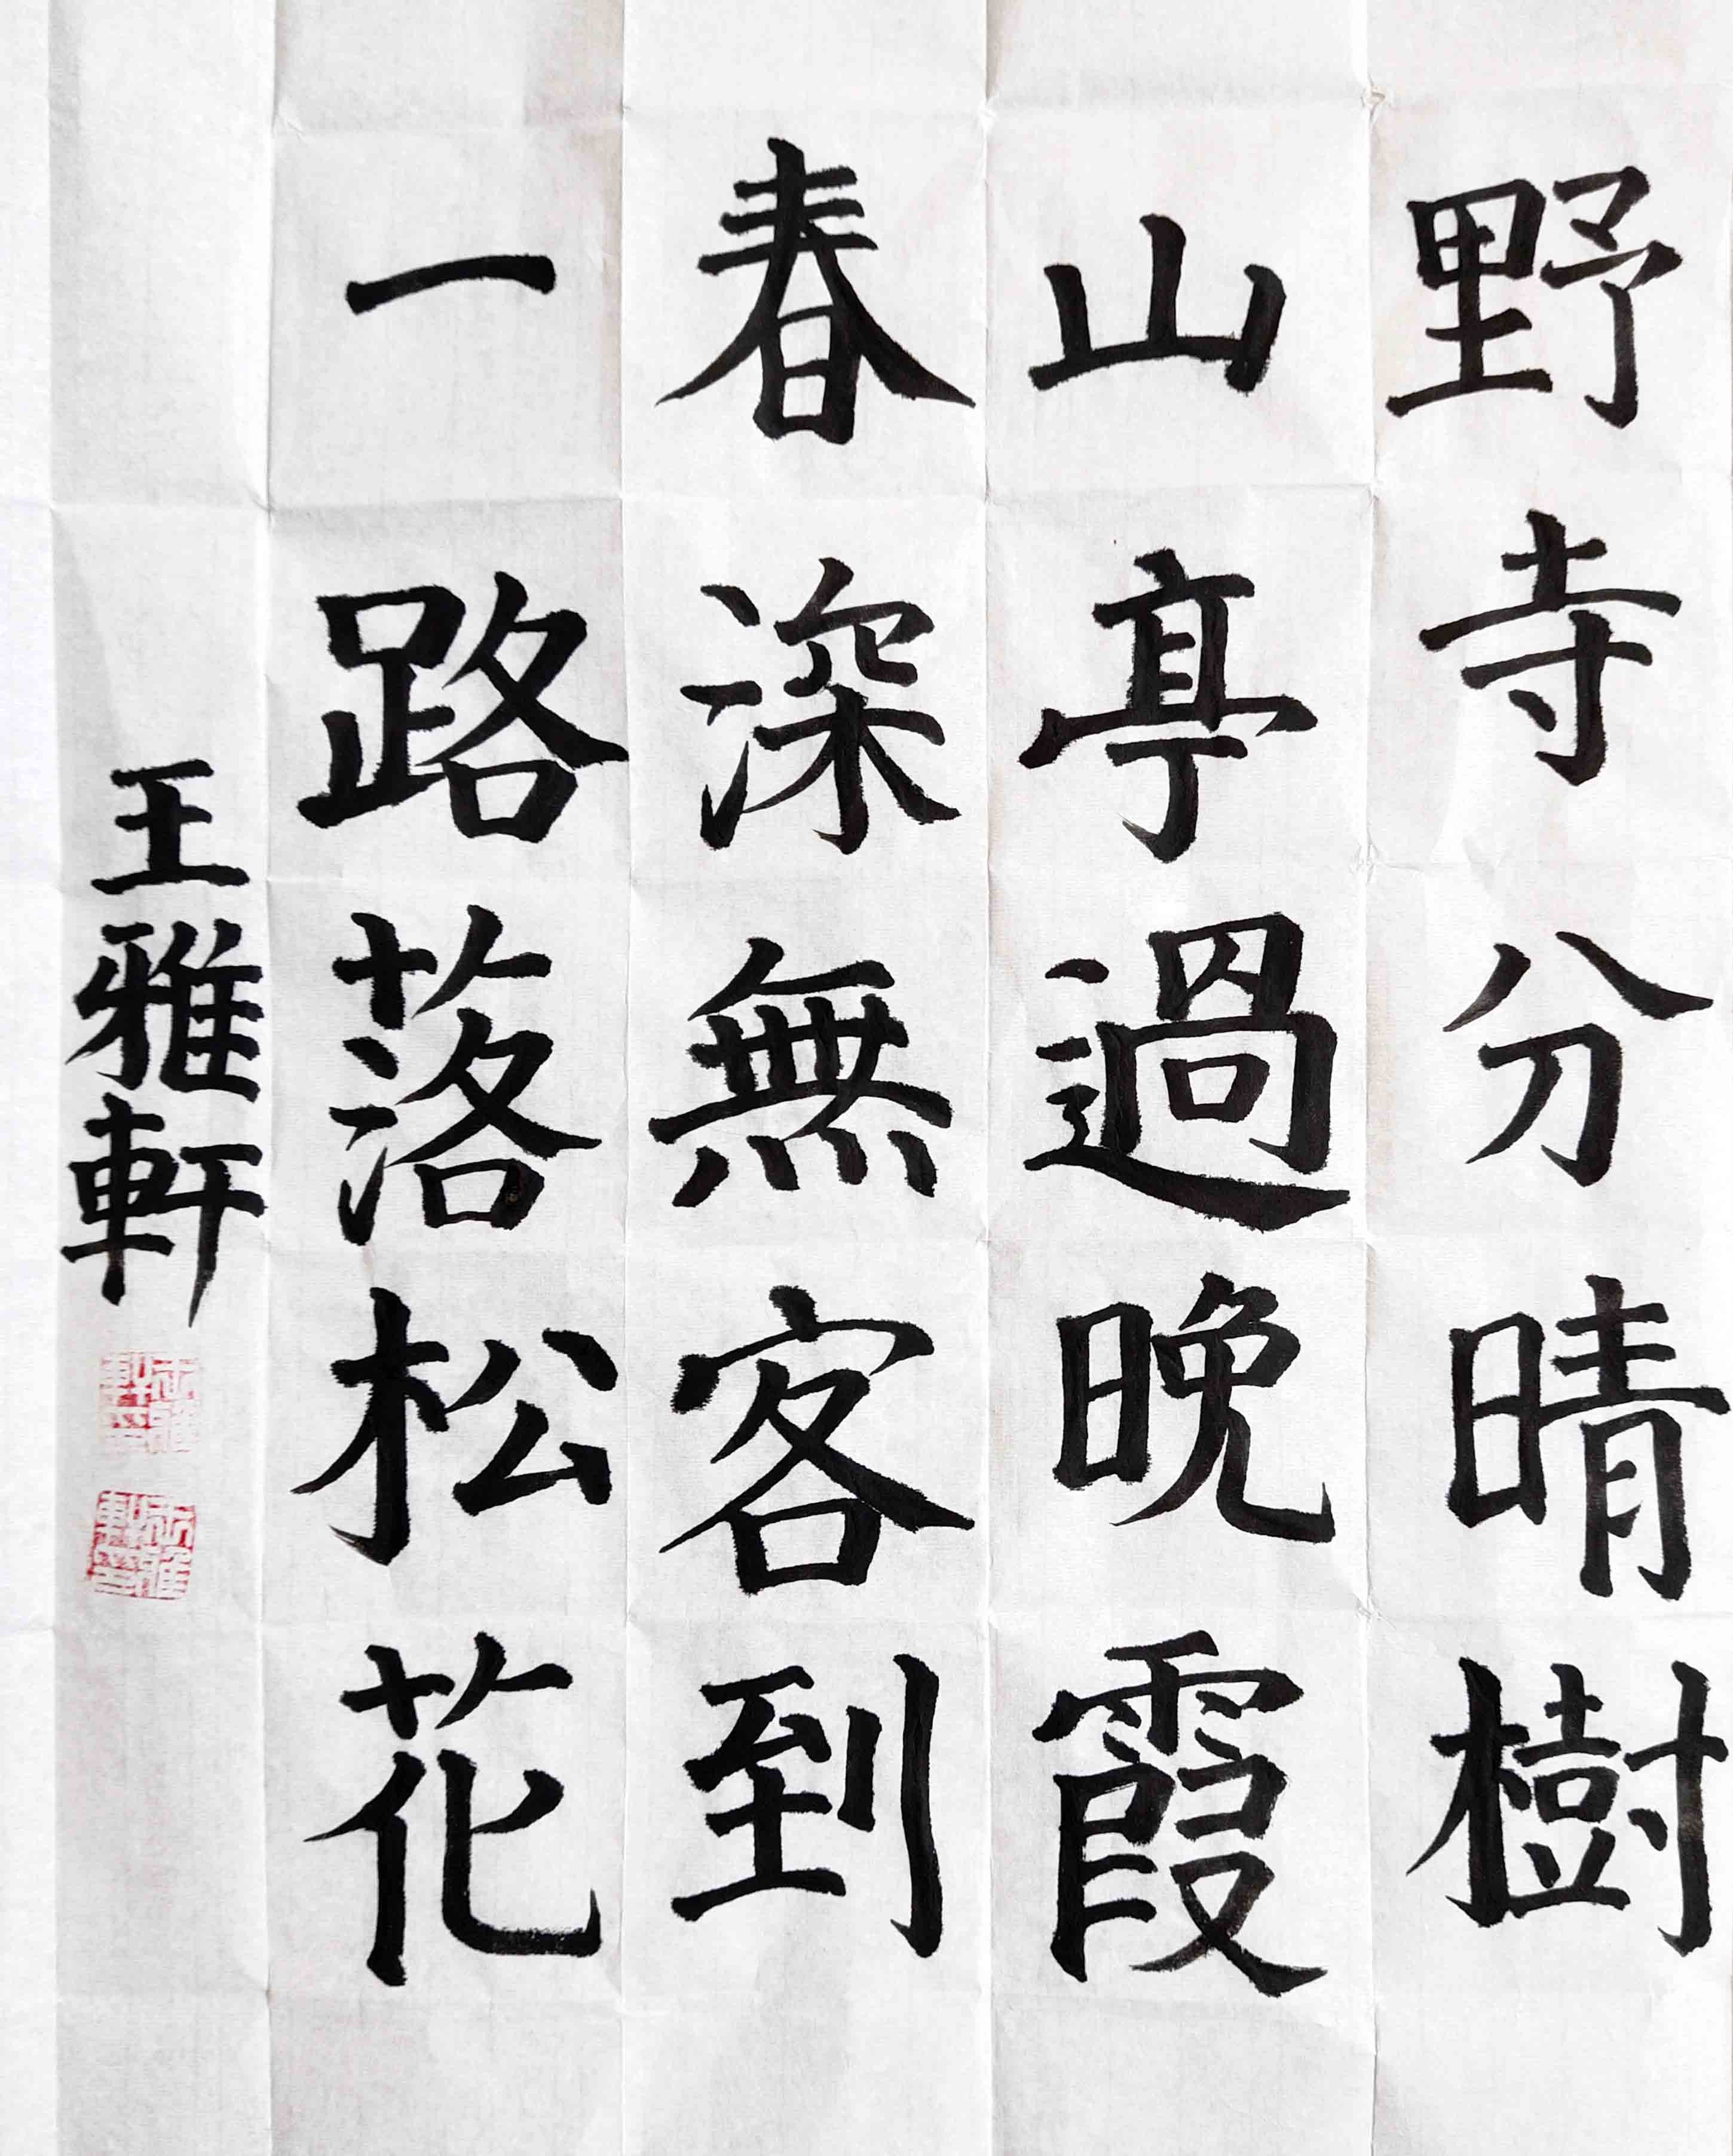 野寺分晴樹
山亭過晚霞
春深無客到
一路落松花
王雅軒